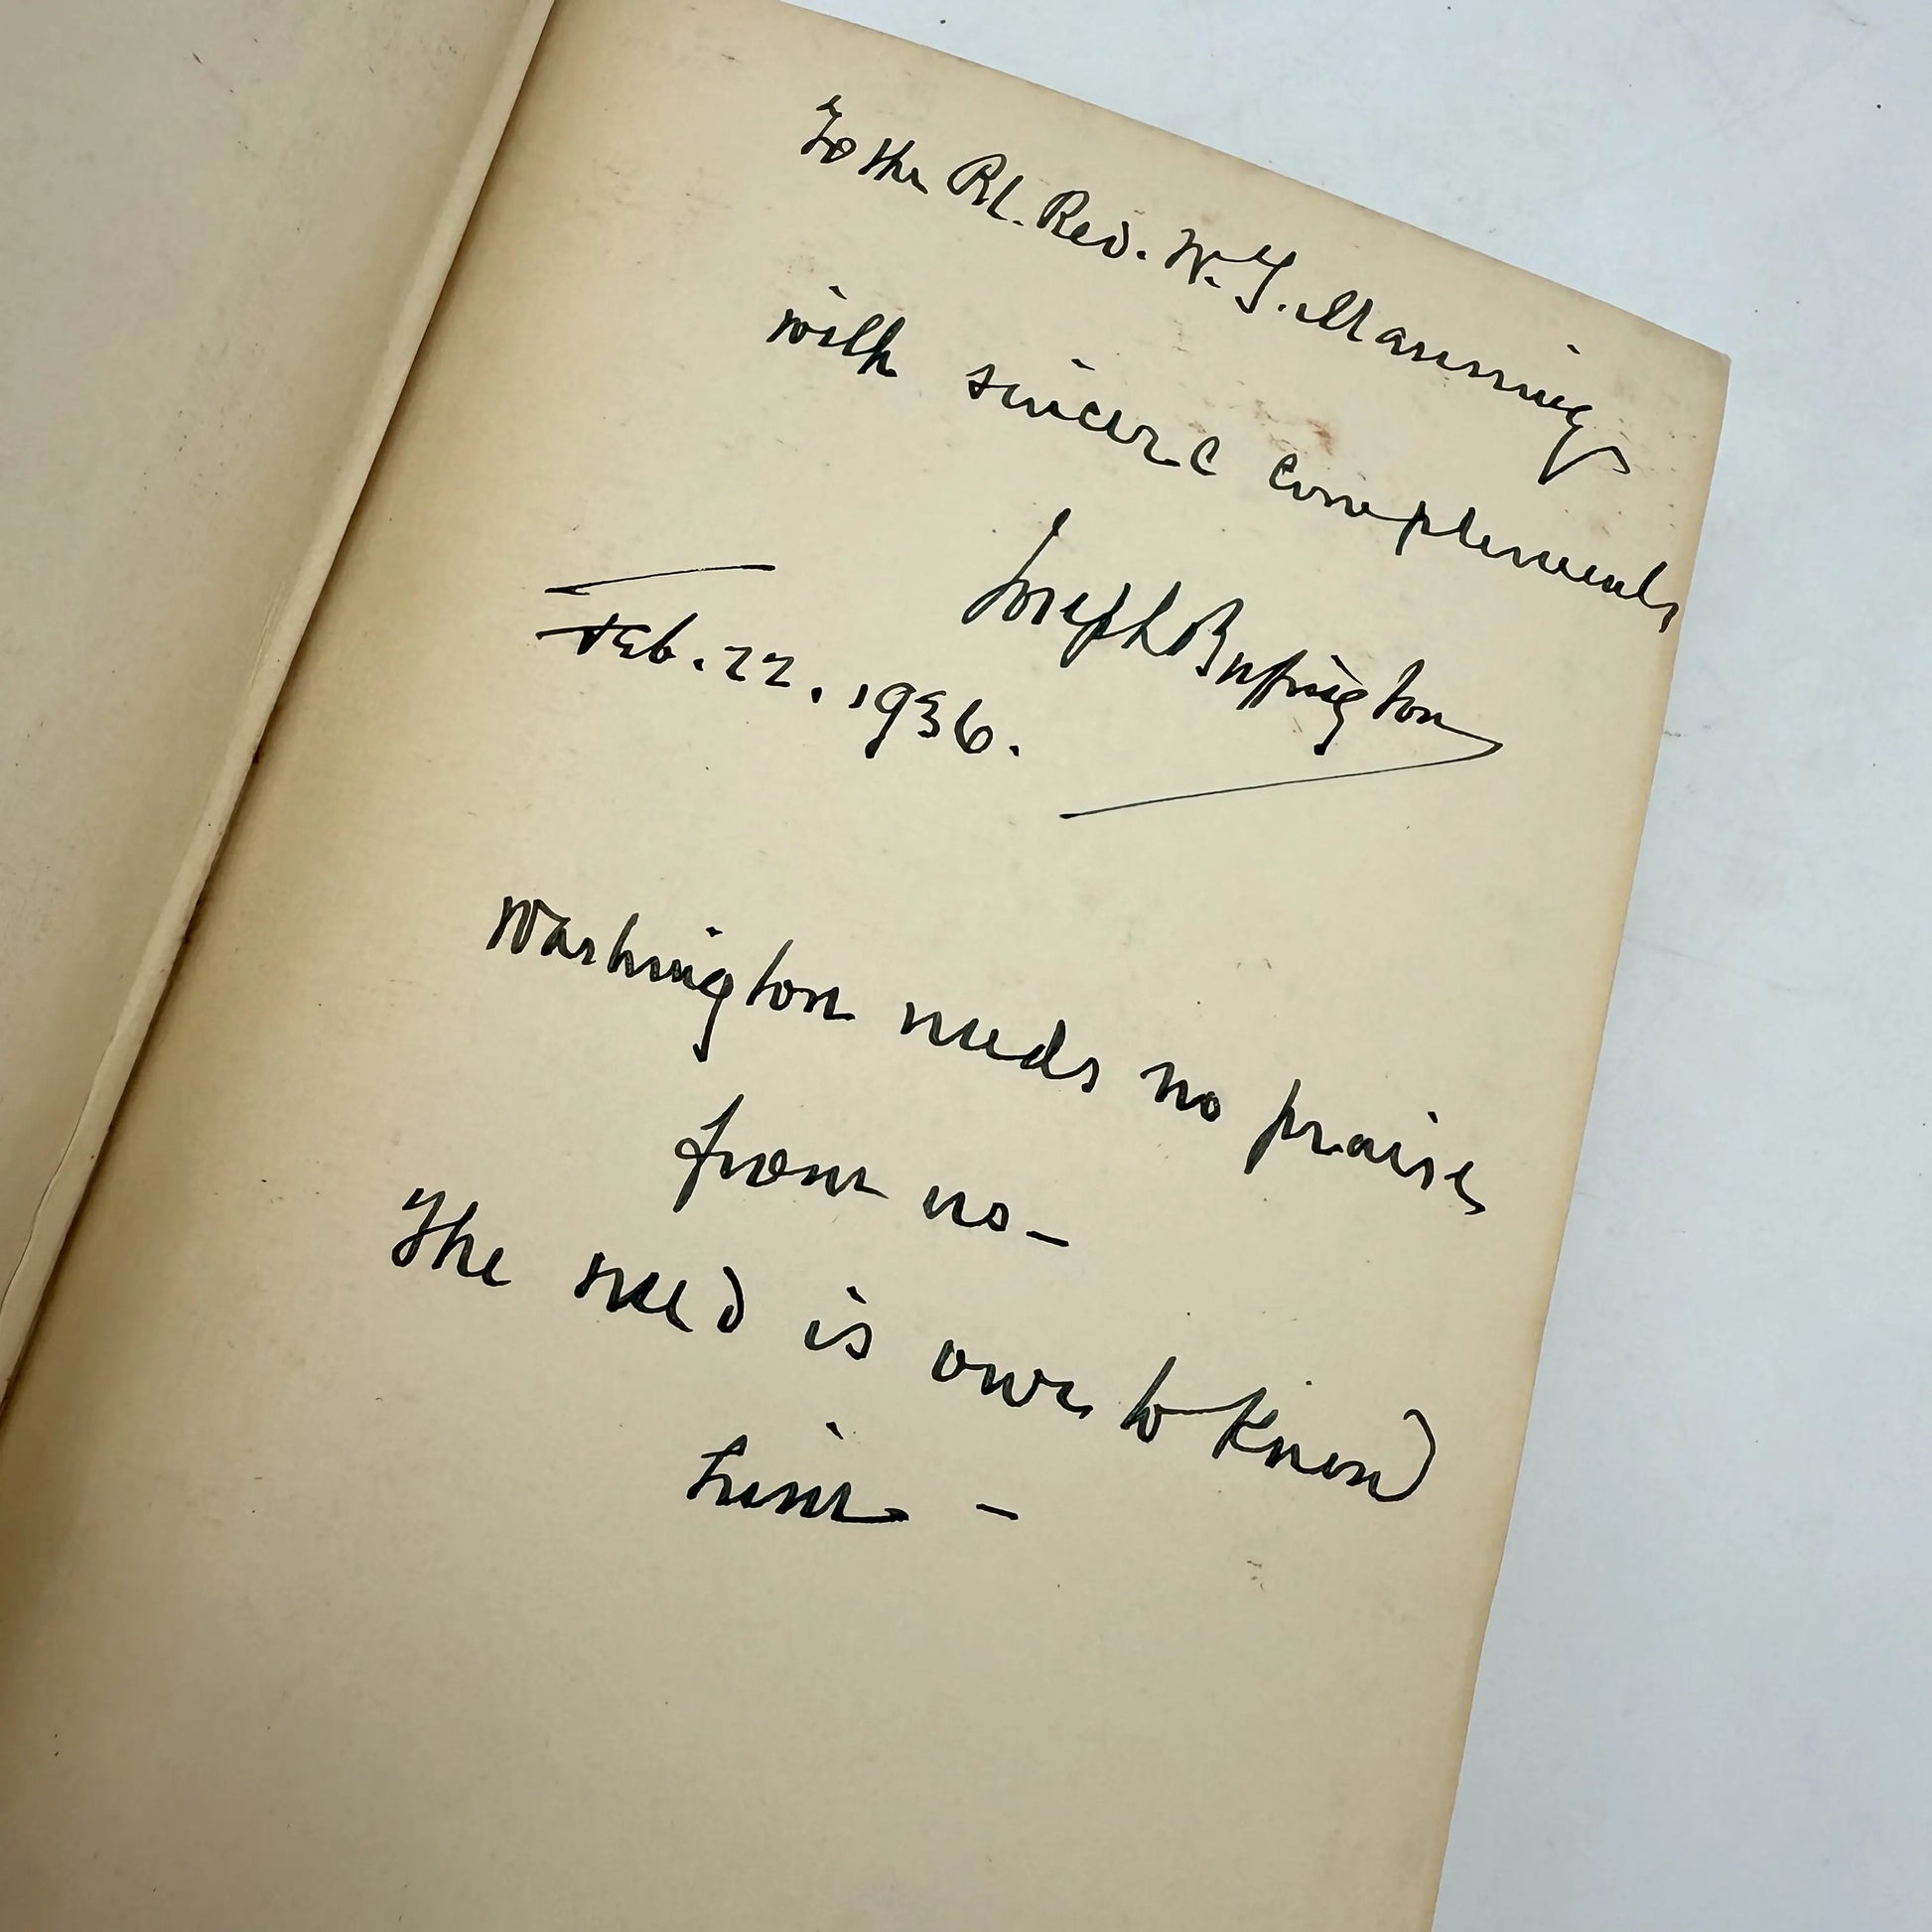 To the Rt. Rev. W. T. Manning
with sincere compliments
Joseph Buffington
Feb. 22. 1936.
Washington needs no praise
from us —
The need is ours to know
him —